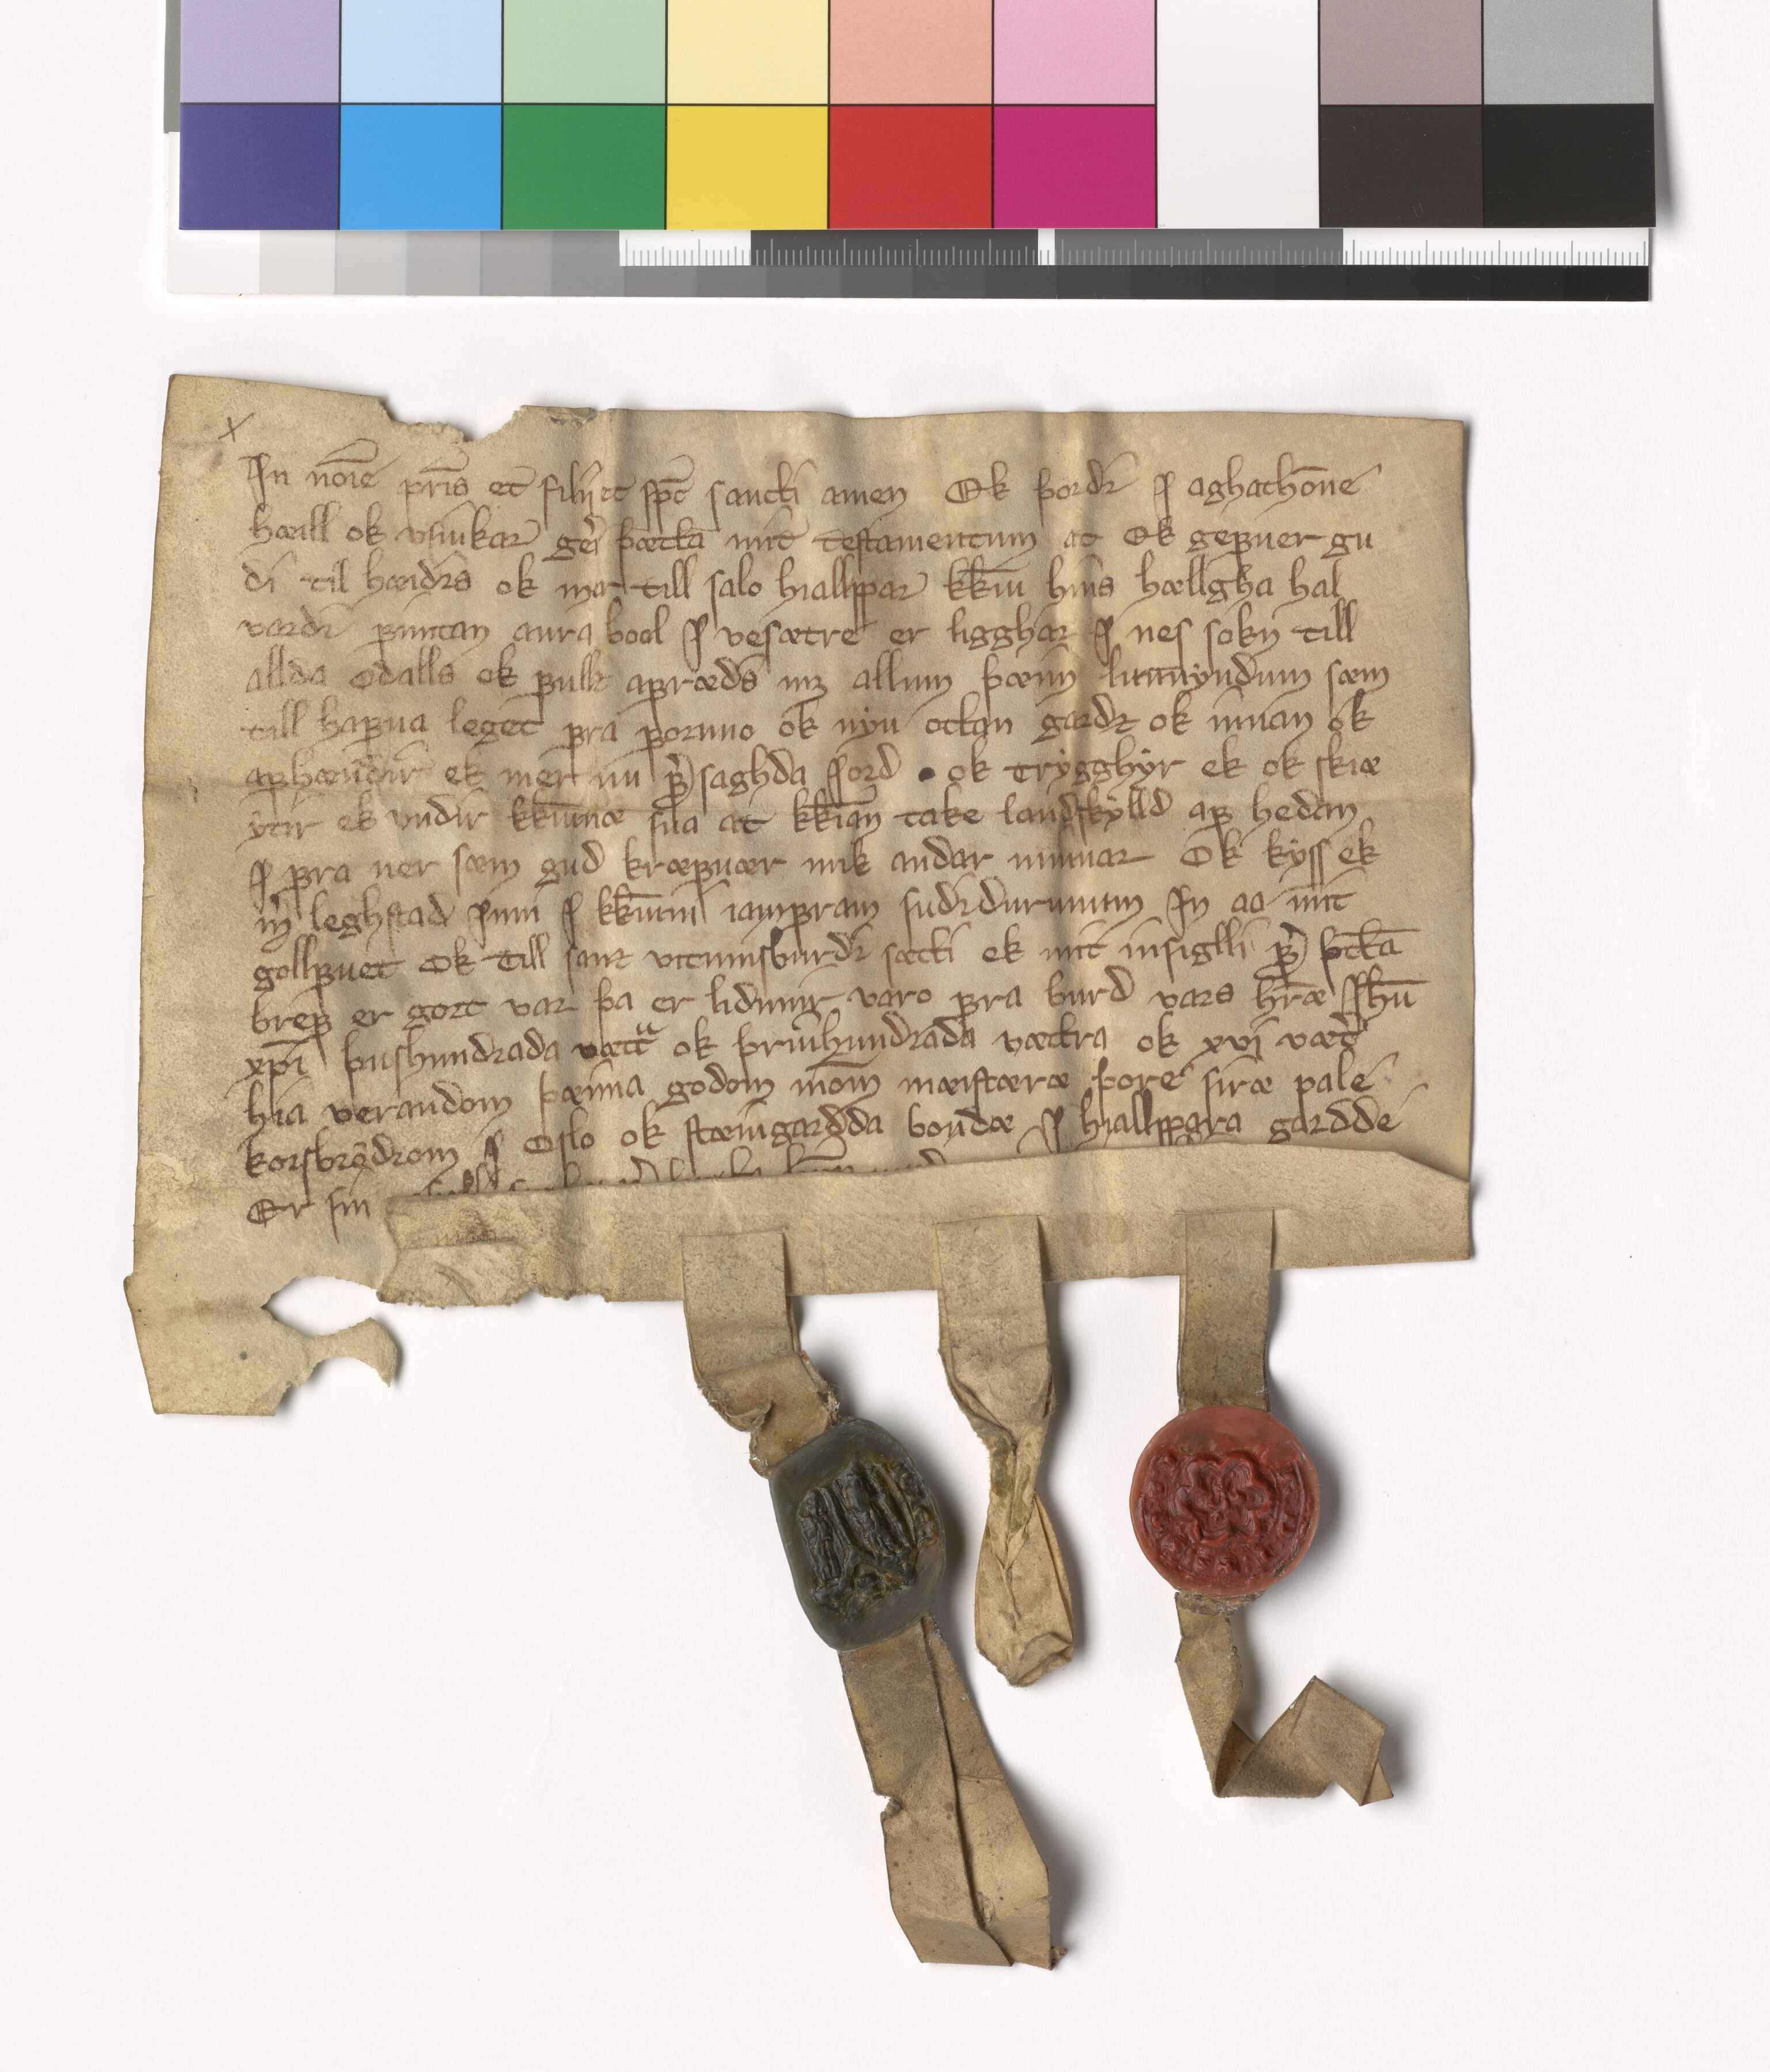 In no̅ie pr̅is et filij et sp̅c sancti amen Ok þordr̅ J aghathone̅
hœill ok vsiukar ger̅i þætta mit testamentum at Ok gefuer gu
di til hœidrs ok mer till salo hiallppar kk̅iu hins hællgha hal
vardr̅ fimtan aura bool J vesætre er ligghar J nes sokn till
allda odalls ok fullr afrædes mʒ allum þæim lutnyndum sæm
till hafua leget fra forno ok nyu vttan gardz ok innan ok
afhændir ek mer nu fr̅saghda Jord · ok trygghyr ek ok skiæ
ytir ek vndir kk̅iunæ sua at kk̅ian take landskylld af hedan
J fra ner sæm gud kræfuær mik andar minnar Ok kyss ek
m̅ leghstad Jnni J kk̅iunni iamfram sudrdurunum In aa mit
gollfuet Ok till sanz vitnisburdr sætti ek mit insiglli fr̅ þtt̅a
bref er gort var þa er lidnir varo fra burd vars hr̅æ Jh̅u
xp̅i þushundrada vættra ok þriuhundrada vættra ok xvj vætr̅
hia verandom þæima godom mo̅m mæistæræ þore siræ pale
korsbrødrom J Oslo ok stæingardda bondæ J hiallppara gardde
Er sin